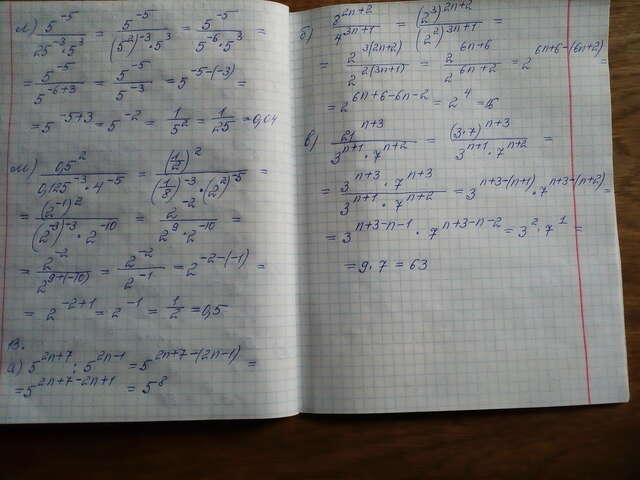 л) 5^-5 / (25^-3 · 5^3) = 5^-5 / ((5^2)^-3 · 5^3) = 5^-5 / (5^-6 · 5^3) =
= 5^-5 / 5^(-6+3) = 5^-5 / 5^-3 = 5^(-5-(-3)) =
= 5^(-5+3) = 5^-2 = 1/5^2 = 1/25 = 0,04
м) 0,5^2 / (0,125^-3 · 4^-5) = (1/2)^2 / ((1/8)^-3 · (2^2)^-5) =
= (2^-1)^2 / ((2^-3)^-3 · 2^-10) = 2^-2 / (2^9 · 2^-10) =
= 2^-2 / 2^(9+(-10)) = 2^-2 / 2^-1 = 2^(-2-(-1)) =
= 2^(-2+1) = 2^-1 = 1/2 = 0,5
13.
а) 5^(2n+7) : 5^(2n-1) = 5^(2n+7-(2n-1)) =
= 5^(2n+7-2n+1) = 5^8
б) 8^(2n+2) / 4^(3n+1) = (2^3)^(2n+2) / (2^2)^(3n+1) =
= 2^(3(2n+2)) / 2^(2(3n+1)) = 2^(6n+6) / 2^(6n+2) = 2^(6n+6-(6n+2)) =
= 2^(6n+6-6n-2) = 2^4 = 16
в) 21^(n+3) / (3^(n+1) · 7^(n+2)) = (3·7)^(n+3) / (3^(n+1) · 7^(n+2)) =
= (3^(n+3) · 7^(n+3)) / (3^(n+1) · 7^(n+2)) = 3^(n+3-(n+1)) · 7^(n+3-(n+2)) =
= 3^(n+3-n-1) · 7^(n+3-n-2) = 3^2 · 7^1 =
= 9 · 7 = 63